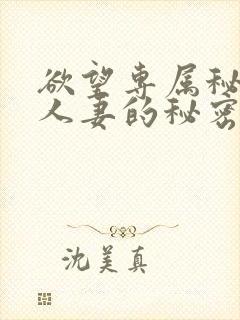 欲望专属秘
人妻的秘密
沈美真